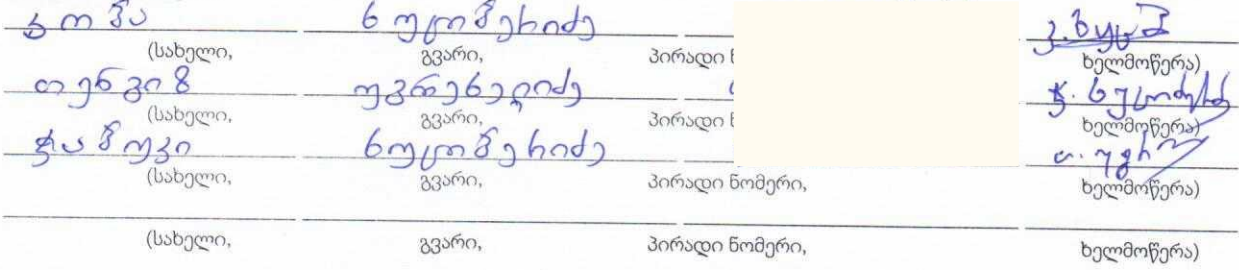 კობა
(სახელი, გვარი, პირადი ხელმოწერა)
თენგიზ უგრეხელიძე
(სახელი, გვარი, პირადი ხელმოწერა)
ჭაბუკი
(სახელი, გვარი, პირადი ნომერი, ხელმოწერა)
(სახელი, გვარი, პირადი ნომერი, ხელმოწერა)